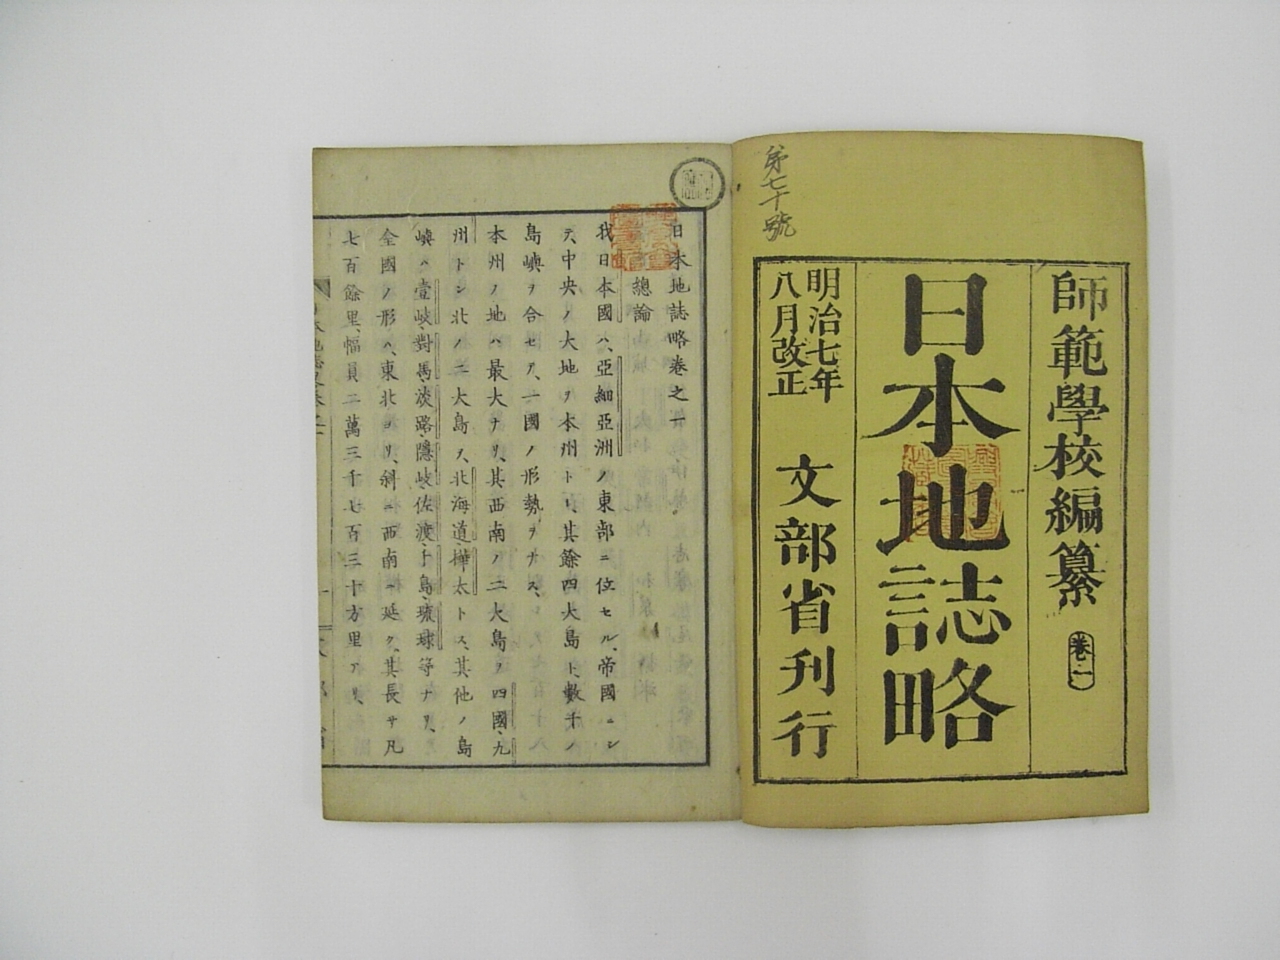 師範學校編纂 卷一
日本地誌略
明治七年
八月改正
文部省刊行
第七十號
日本地誌略卷之一
總論
我日本國ハ、亞細亞洲ノ東部ニ位セル、帝國ニシ
テ、中央ノ大地ヲ本州トシ、其餘四大島ト、數千ノ
島嶼ヲ合セテ、一國ノ形勢ヲナス、
本州ノ地ハ最大ナリ、其西南ノ二大島ヲ四國、九
州トシ北ノ二大島ヲ、北海道、樺太トス、其他ノ島
嶼ハ壹岐、對馬、淡路、隱岐、佐渡、十島、琉球等ナリ、
全國ノ形ハ、東北ヨリ、斜ニ西南ニ延ク、其長サ凡
七百餘里、幅員二萬三千七百三十方里アリ、